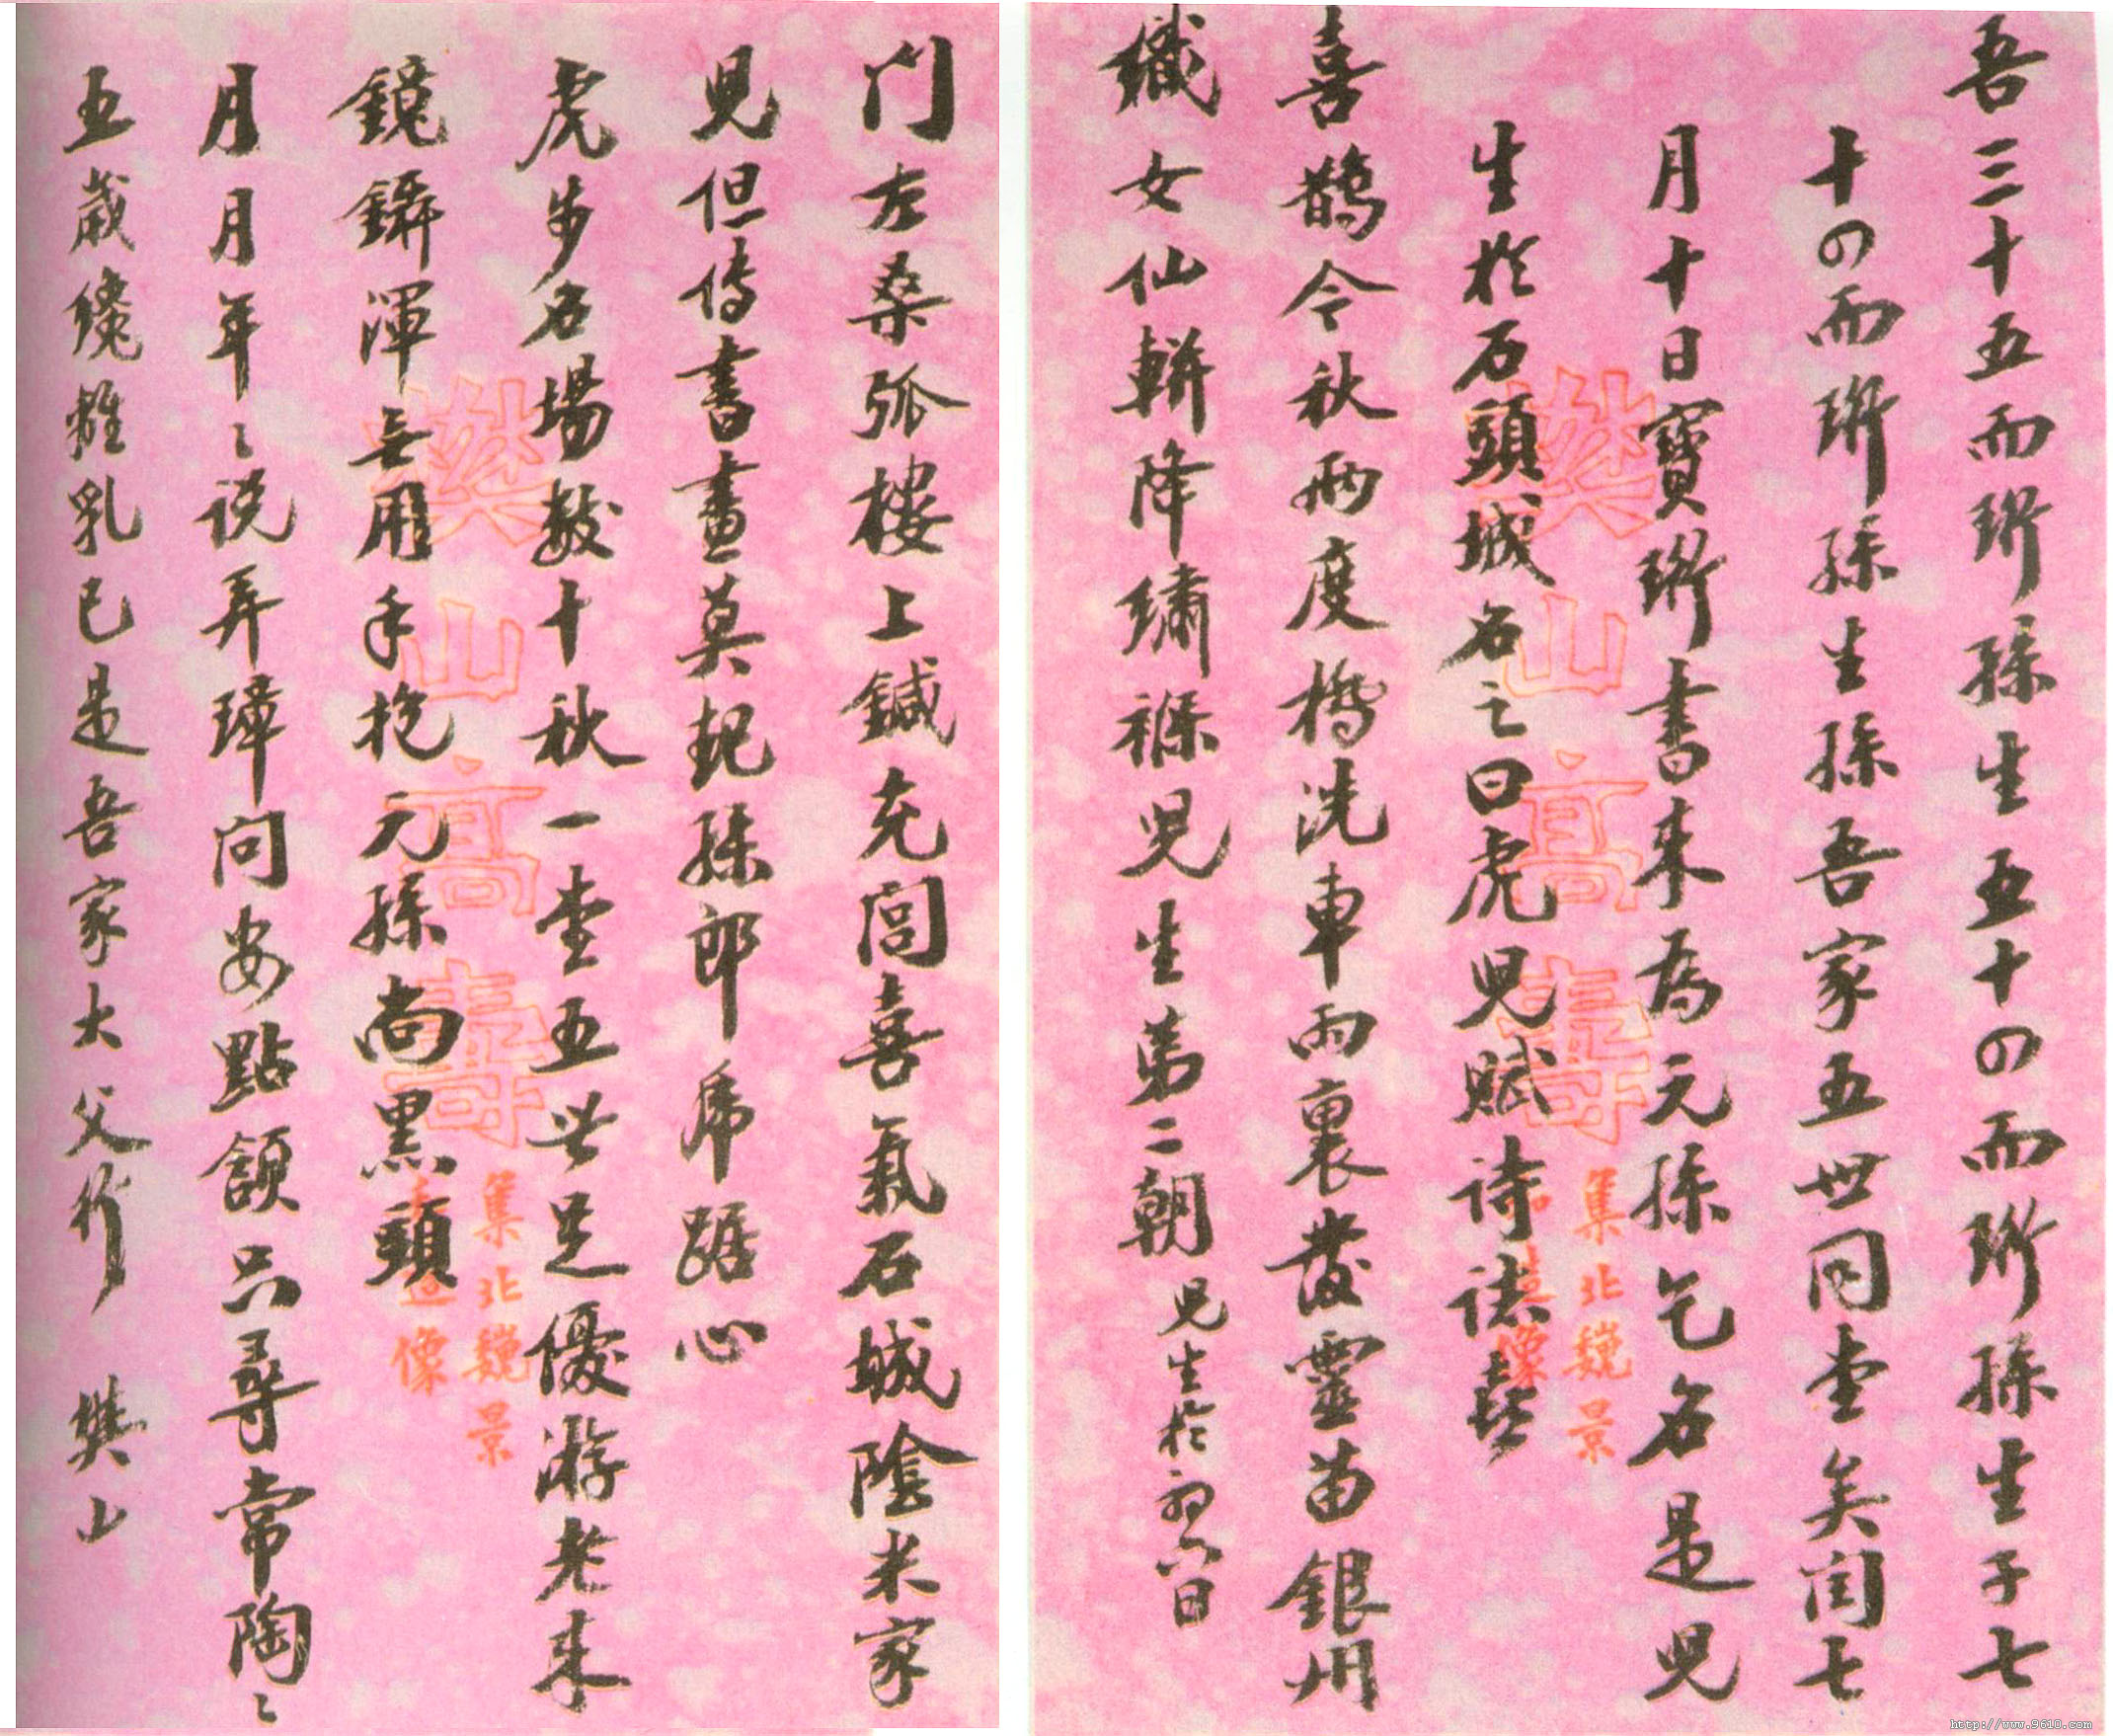 吾三十五而珩孫生五十四而珩孫生子七
十四而珩孫生孫吾家五世同堂矣閏七
月十日寶珩書來為元孫乞名是兒
生於石頭城名之曰虎兒賦詩誌喜
喜鵲今秋兩度橋洗車雨裏發靈苗銀州
織女仙軿降繡褓兒生第二朝 兒生於初六日
門左桑弧樓上鍼充閭喜氣石城陰米家
兒但傳書畫莫把孫郎虎踞心
虎步名場數十秋一堂五世足優游老來
鏡鑷渾無用手抱元孫尚黑頭
月月年〻說弄璋問安點頷只尋常陶〻
五歲纔離乳已是吾家大父行 樊山
樊山高壽
集北魏景
造像
樊山高壽
集北魏景
造像
http://www.9610.com